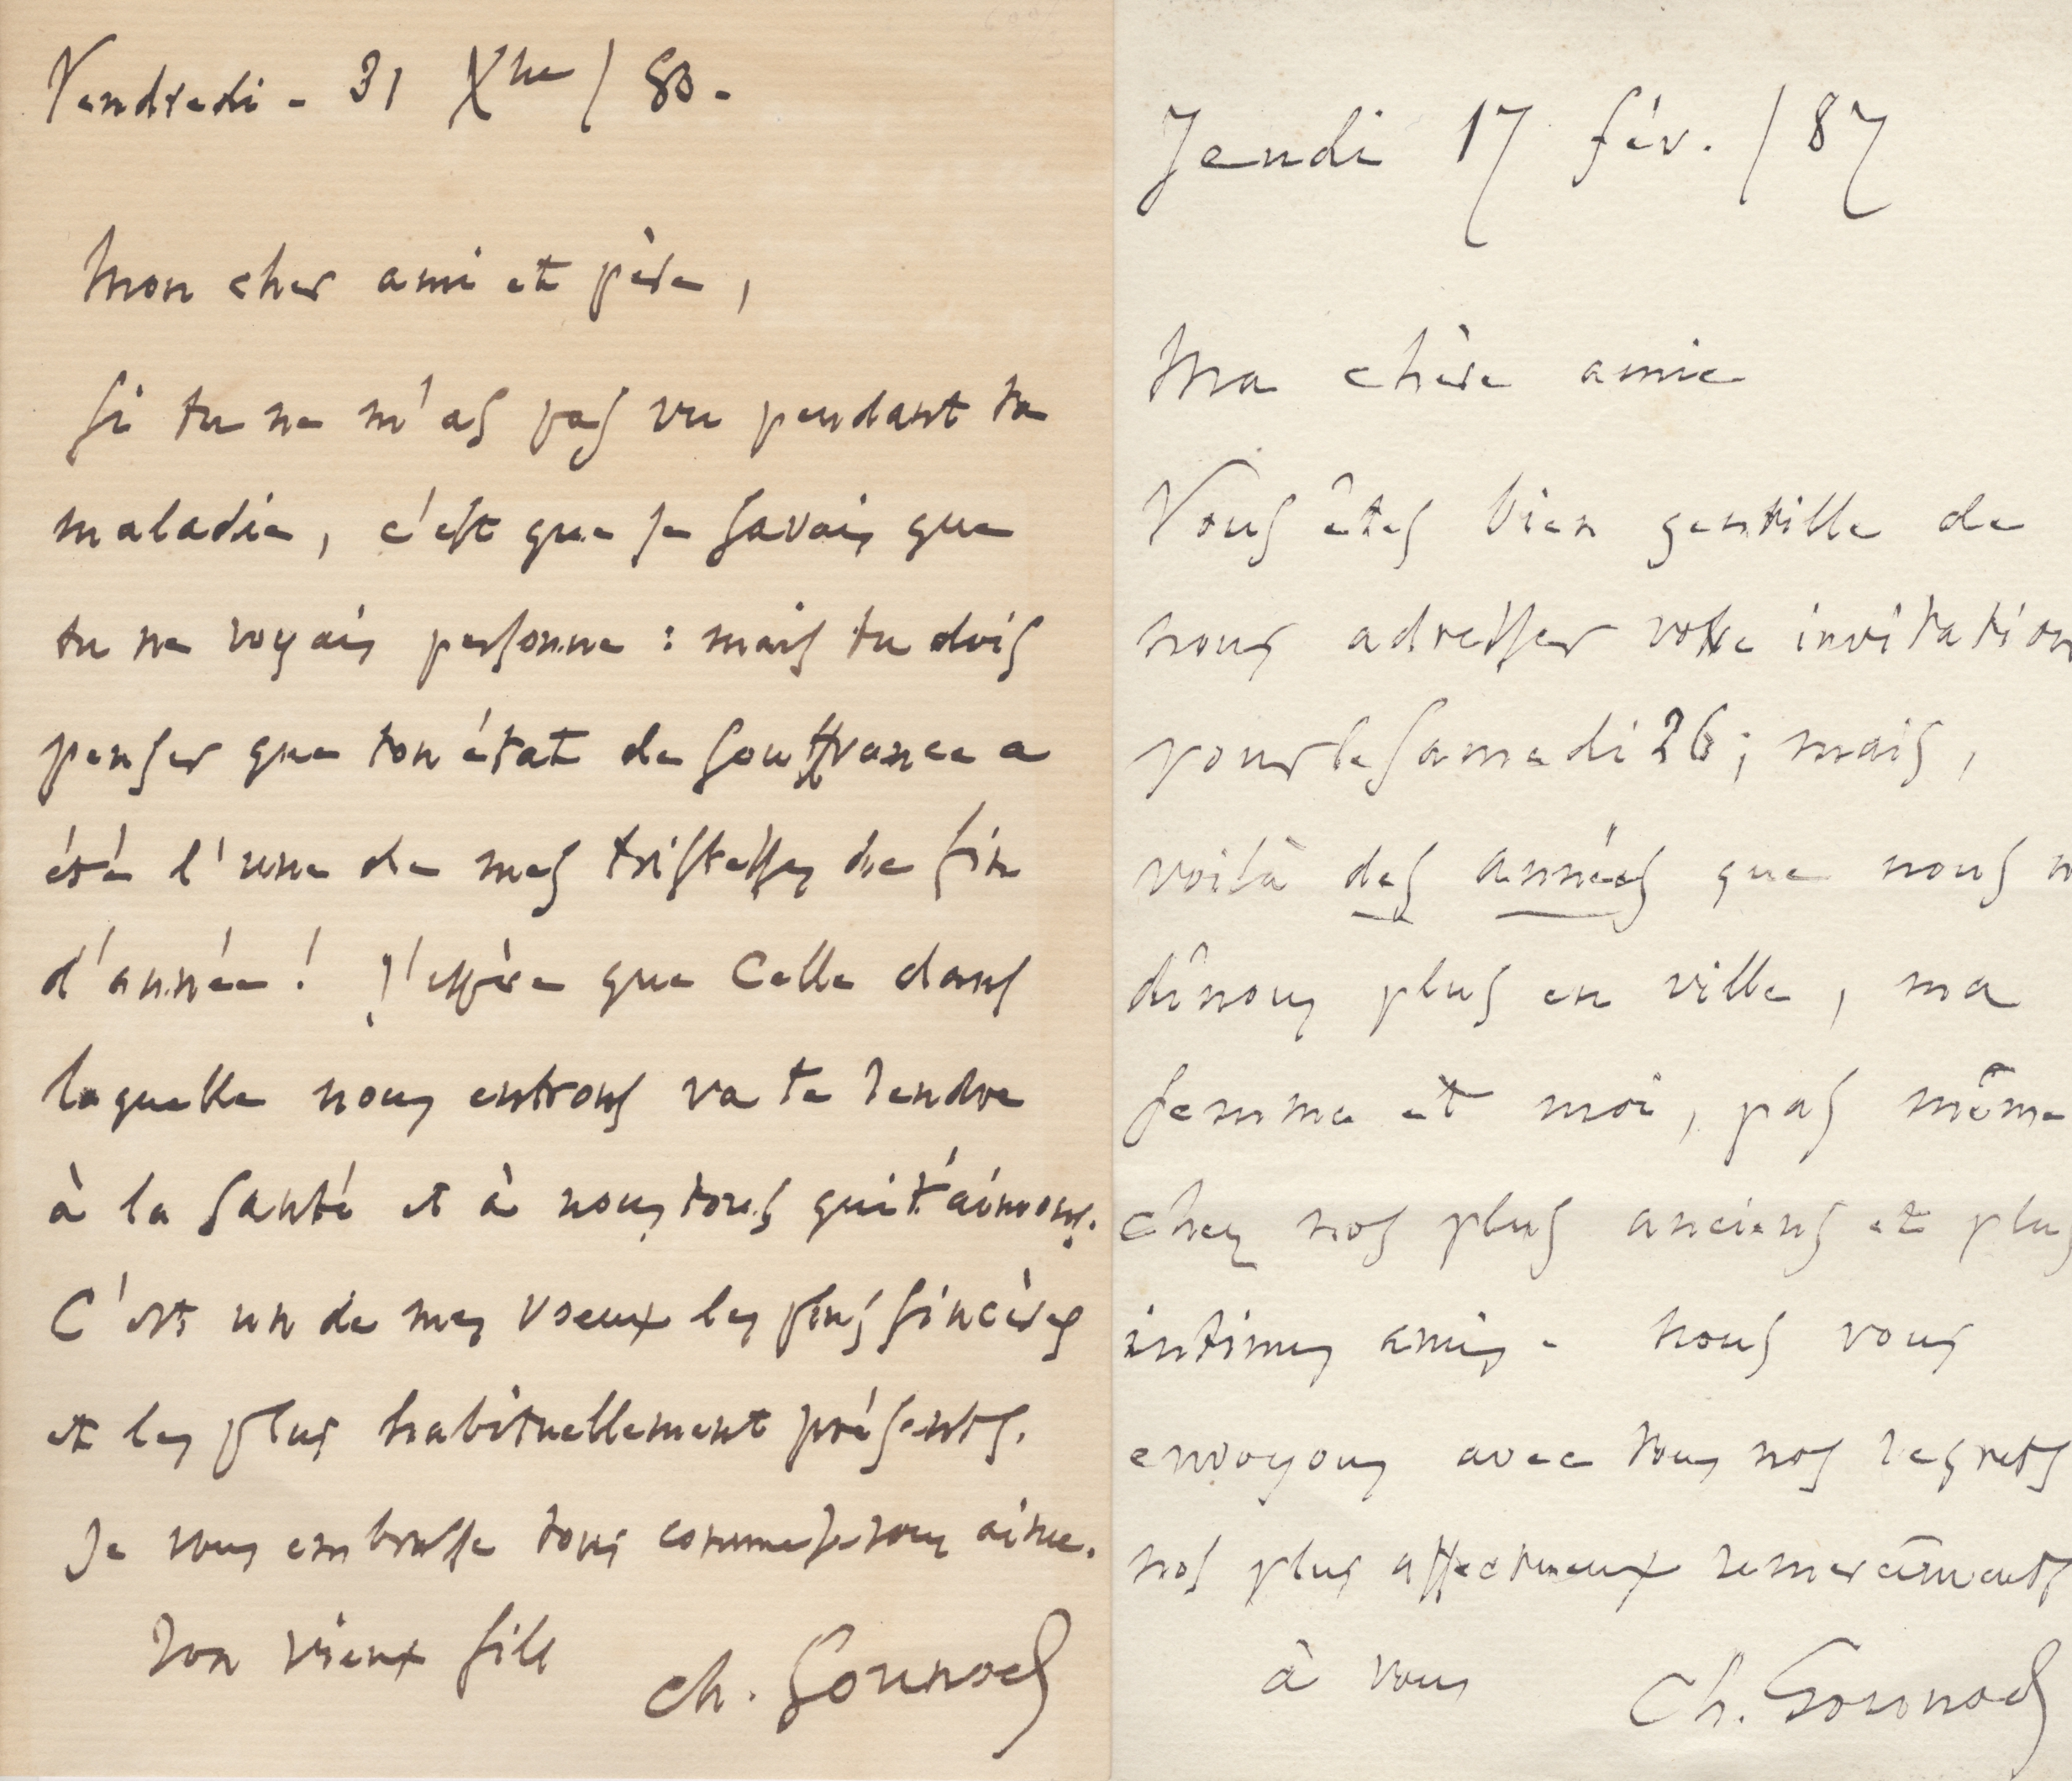 Vendredi - 31 Xbre / 80.
Mon cher ami et père,
Si tu ne m'as pas vu pendant ta
maladie, c'est que je savais que
tu ne voyais personne : mais tu dois
penser que ton état de souffrance a
été l'une de mes tristesses de fin
d'année ! J'espère que Celle dans
laquelle nous entrons va te rendre
à la santé et à nous tous qui t'aimons.
C'est un de mes voeux les plus sincères
et les plus habituellement présents.
Je vous embrasse tous comme je vous aime.
Ton vieux fils
Ch. Gounod
Jeudi 17 fév. / 87
Ma chère amie
Vous êtes bien gentille de
nous adresser votre invitation
pour le Samedi 26 ; mais,
voilà des années que nous
dînons plus en ville, ma
femme et moi, pas même
chez nos plus anciens et plus
intimes amis - nous vous
envoyons avec tous nos regrets
nos plus affectueux remercîments
à vous
Ch. Gounod